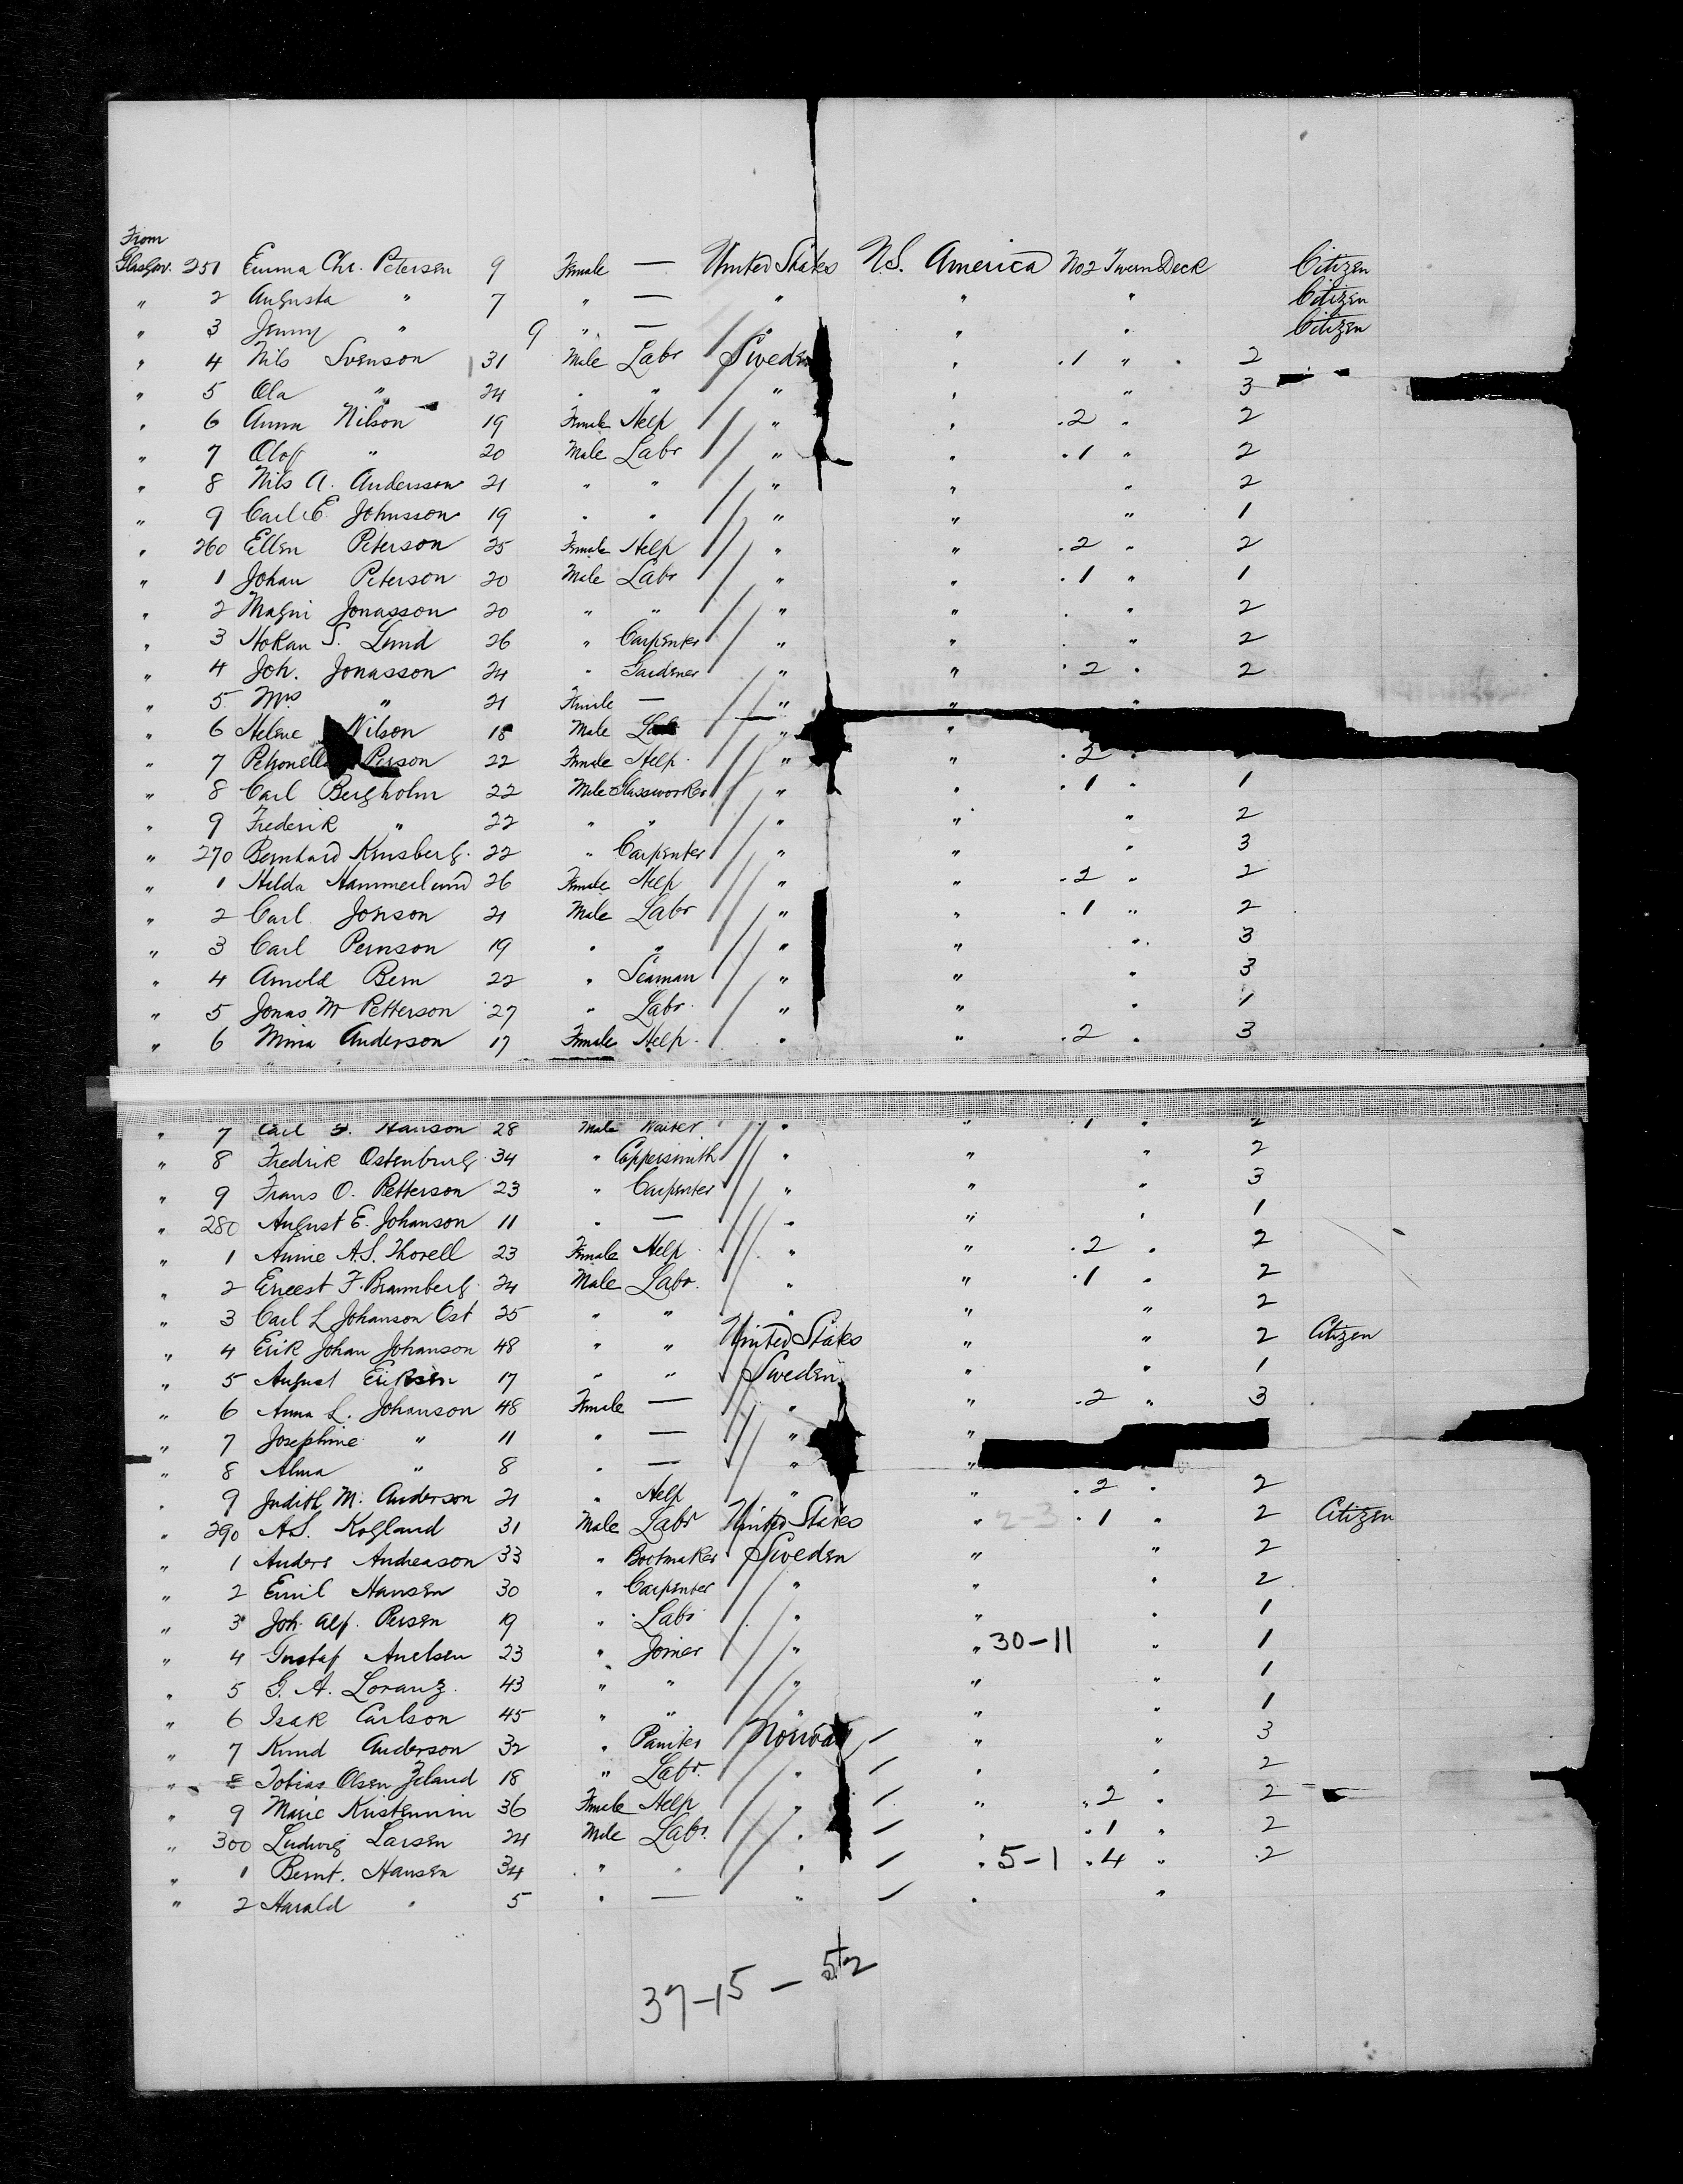 From
Glasgow. 251 Emma Chr. Petersen 9 Female — United States U.S. America No 2 Tween Deck Citizen
" 2 Augusta " 7 " — " " " Citizen
" 3 Jenny " 9 " — " " " Citizen
" 4 Nils Svenson 31 Male Labr Sweden " . 1 " . 2
" 5 Ola " 24 " " " " " 3
" 6 Anna Nilson 19 Female Help " " . 2 " 2
" 7 Olof " 20 Male Labr " " . 1 " 2
" 8 Nils A. Andersson 21 " " " " " 2
" 9 Carl E. Johnsson 19 " " " " " 1
" 260 Ellen Peterson 25 Female Help " " . 2 " 2
" 1 Johan Peterson 20 Male Labr " " . 1 " 1
" 2 Magni Jonasson 20 " " " " . " 2
" 3 Hokan S. Lund 26 " Carpenter " " . " 2
" 4 Joh. Jonasson 24 " Gardener " " . 2 " 2
" 5 Mrs " 21 Female — " " "
" 6 Helene Nilson 18 Male — " "
" 7 Petronella Person 22 Female Help " " . 2 "
" 8 Carl Bergholm 22 Male Glassworker " " . 1 " 1
" 9 Frederik " 22 " " " " " 2
" 270 Bernhard 22 " Carpenter " " " 3
" 1 Hilda Hammerlund 26 Female Help " " . 2 " 2
" 2 Carl Jonson 21 Male Labr " " . 1 " 2
" 3 Carl Pernson 19 " " " " " 3
" 4 Arnold Bern 22 " Seaman " " " 3
" 5 Jonas M Petterson 27 " Labr " " " 1
" 6 Mina Anderson 17 Female Help " " . 2 " 3
" 7 Carl Hanson 28 Male Waiter " " . 1 " 2
" 8 Fredrik Ostenburg 34 " Coppersmith " " " 2
" 9 Frans O. Petterson 23 " Carpenter " " " 3
" 280 August E. Johanson 11 " — " " " 1
" 1 Annie A.S. Thorell 23 Female Help " " . 2 " 2
" 2 Ernest F. Bramberg 24 Male Labr. " " . 1 " 2
" 3 Carl L Johanson Ost 25 " " " " " 2
" 4 Erik Johan Johanson 48 " " United States " " 2 Citizen
" 5 August Eriksen 17 " " Sweden " " 1
" 6 Anna L. Johanson 48 Female — " " . 2 " 3
" 7 Josephine " 11 " — " "
" 8 Alma " 8 " — " "
" 9 Judith M. Anderson 21 " Help " " . 2 " 2
" 290 A.S. Kogland 31 Male Labr United States " 2-3 . 1 " 2 Citizen
" 1 Anders Andreason 33 " Bootmaker Sweden " " 2
" 2 Emil Hansen 30 " Carpenter " " " 2
" 3 Joh. Alf. Persen 19 " Labr " " " 1
" 4 Gustaf 23 " Joiner " " 30-11 " 1
" 5 G. A. Loranz. 43 " " " " " 1
" 6 Isak Carlson 45 " " " " " 1
" 7 Knud Anderson 32 " Painter Norway " " 3
" 8 Tobias Olsen 18 " Labr. " " " 2
" 9 Marie 36 Female Help " " . 2 " 2
" 300 Ludwig Larsen 24 Male Labr. " " . 1 " 2
" 1 Bernt. Hansen 34 " " " " 5-1 . 4 " 2
" 2 Harald " 5 " — " " "
37-15 - 52